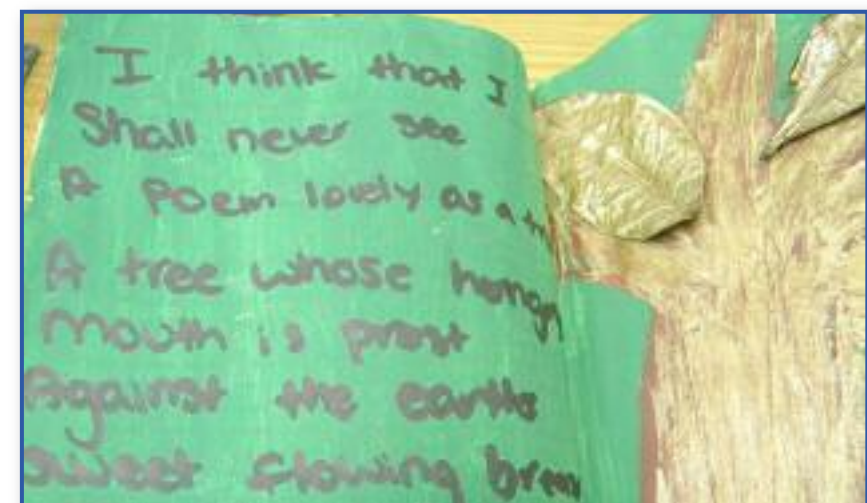 I think that I
Shall never see
A Poem lovely as a
A tree whose
mouth is prest
Against the
sweet flowing